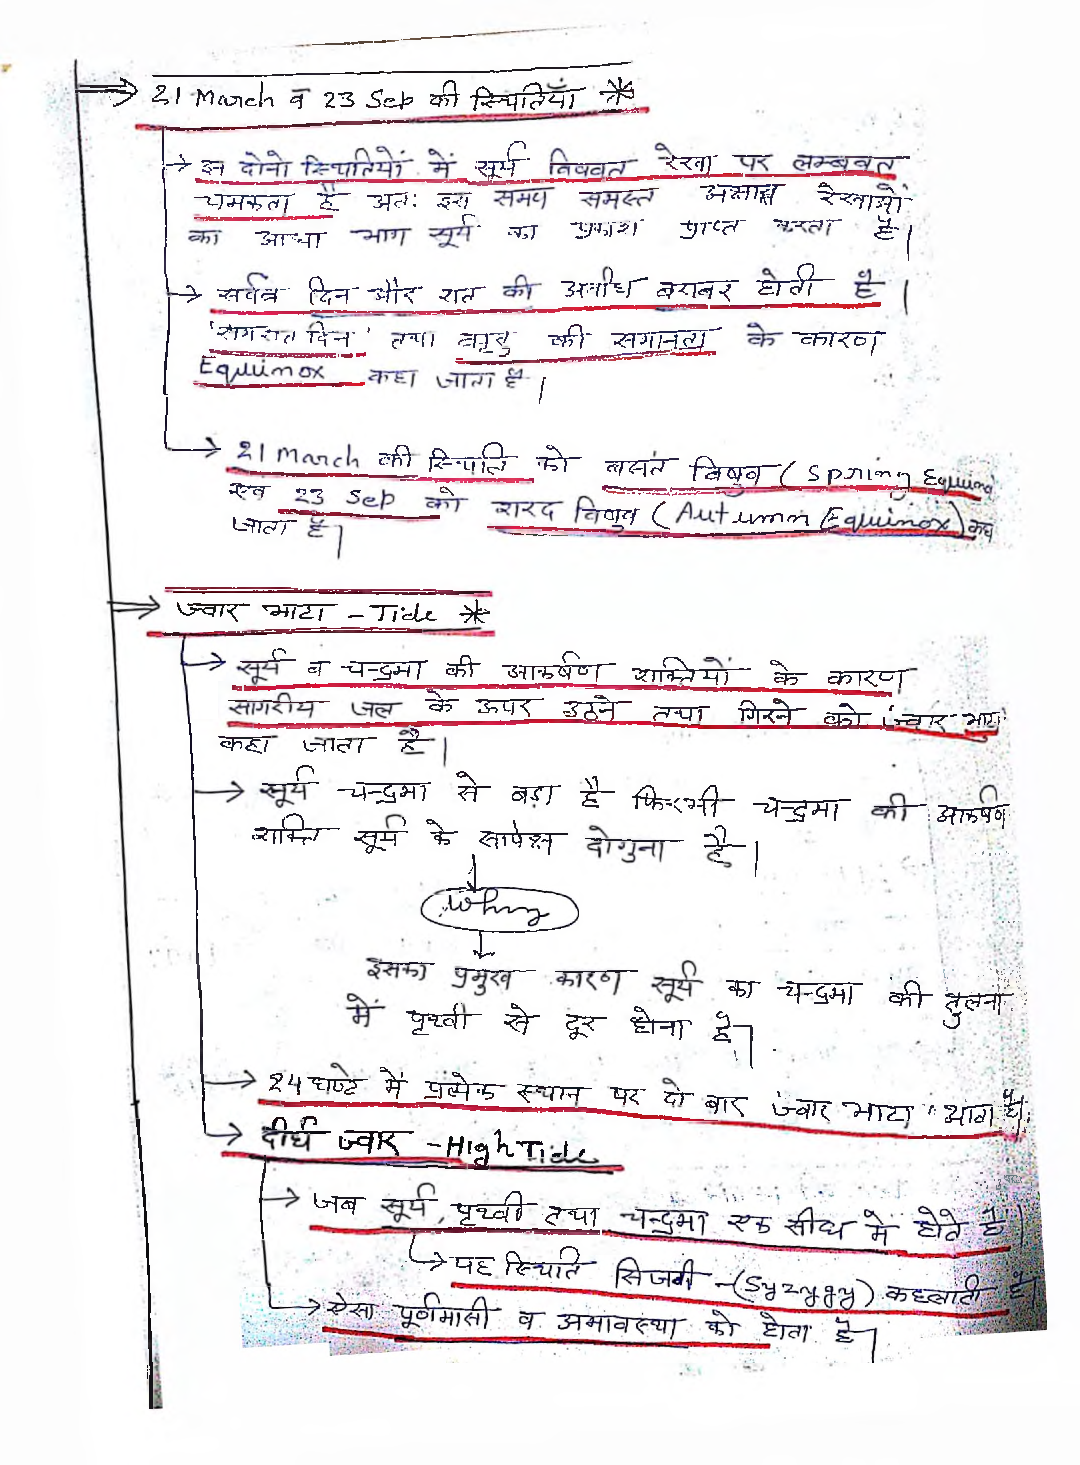 21 March व 23 Sep की स्थितियाँ *
→ इन दोनो स्थितियों में सूर्य विषवत रेखा पर लम्बवत
चमकता है अत: इस समय समस्त अक्षांश रेखाओं
का आधा भाग सूर्य का प्रकाश प्राप्त करता है।
→ सर्वत्र दिन और रात की अवधि बराबर होती है।
'समरात दिन' तथा ऋतु की समानता के कारण
Equinox कहा जाता है।
→ 21 March की स्थिति को बसंत विषुव (Spring Equino
एवं 23 Sep को शरद विषुव (Autumn Equinox) कहा
जाता है।
→ ज्वार भाटा - Tide *
→ सूर्य व चन्द्रमा की आकर्षण शक्तियों के कारण
सागरीय जल के ऊपर उठने तथा गिरने को ज्वार भाटा
कहा जाता है।
→ सूर्य चन्द्रमा से बड़ा है फिरभी चन्द्रमा की आकर्षण
शक्ति सूर्य के सापेक्ष दोगुना है।
Why
इसका प्रमुख कारण सूर्य का चन्द्रमा की तुलना
में पृथ्वी से दूर होना है।
→ 24 घण्टे में प्रत्येक स्थान पर दो बार ज्वार भाटा आता है।
→ दीर्घ ज्वार - High Tide
→ जब सूर्य, पृथ्वी तथा चन्द्रमा एक सीध में होते हैं।
→ यह स्थिति सिजगी - (Syzygy) कहलाती है
→ ऐसा पूर्णमासी व अमावस्था को होता है।